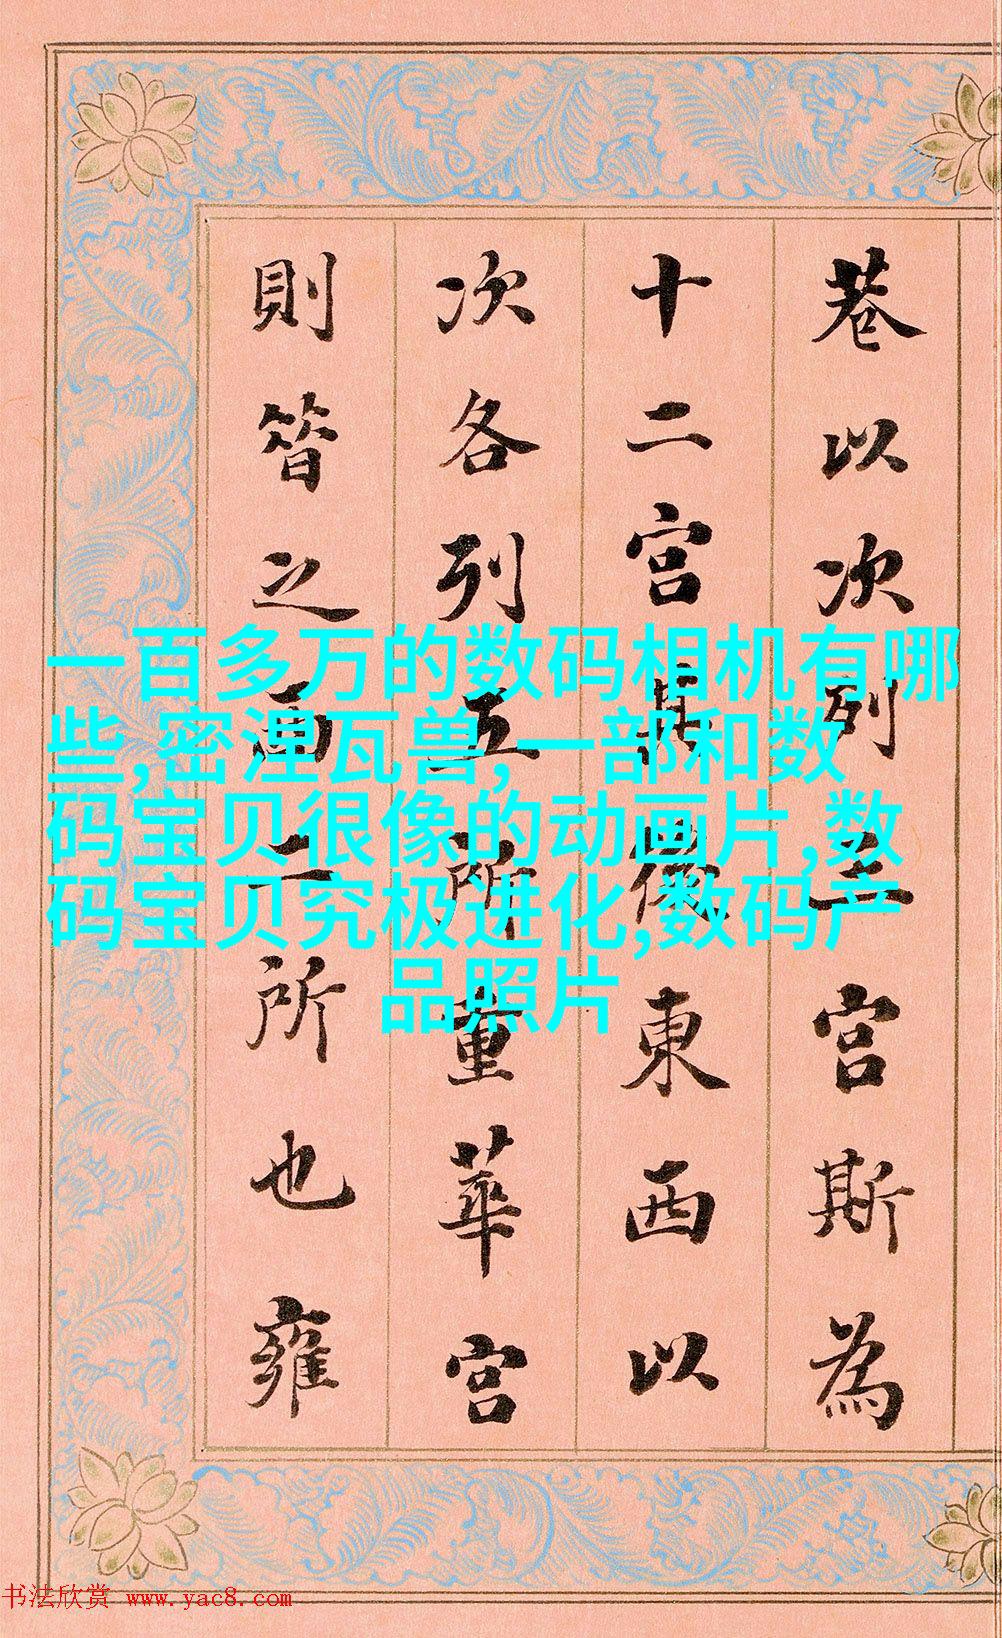 巷以次列三宮斯為
十二宮後東西以
次各列五所重華宮
則昔之西二所也雍
一百多万的数码相机有哪
些,密涅瓦兽,一部和数
码宝贝很像的动画片,数
码宝贝究极进化,数码产
品照片
书法欣赏 www.yac8.com